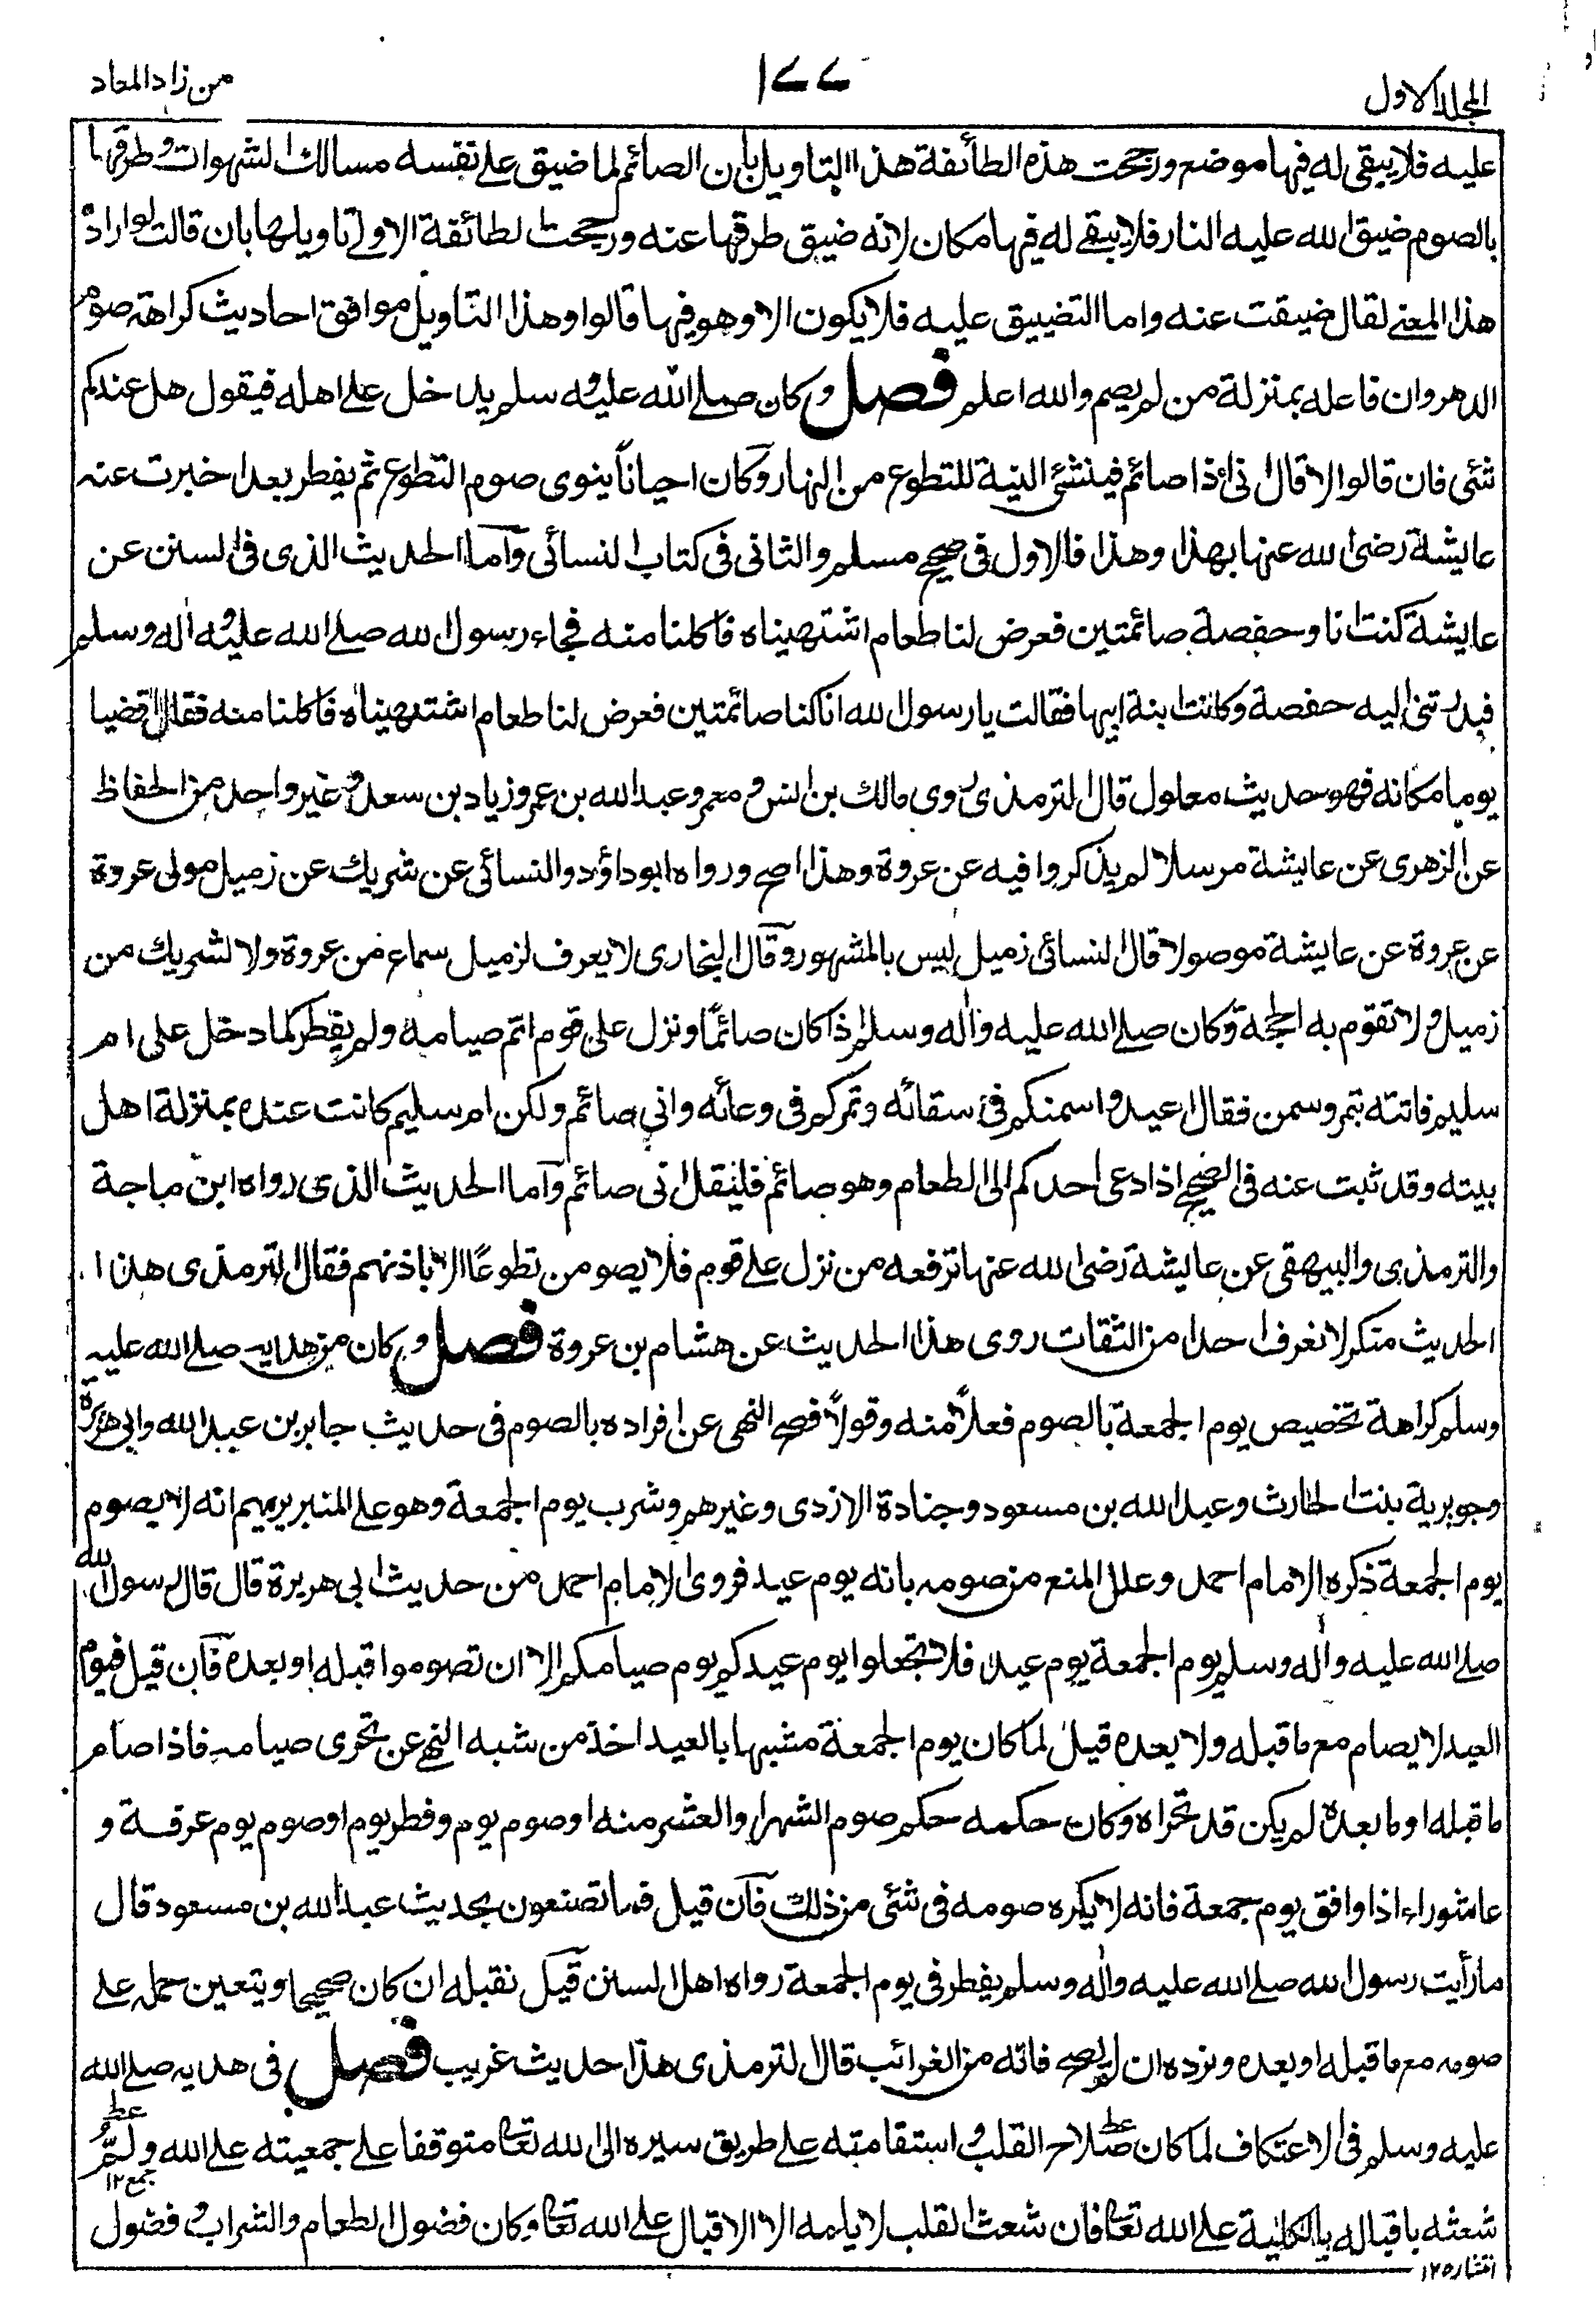 المجلد الاول
١٧٧
من زاد المعاد
عليه فلا يبقى له فيها موضع ورجحت هذه الطائفة هذا التاويل بان الصائم لما ضيق على نفسه مسالك الشهوات وطرقها
بالصوم ضيق الله عليه النار فلا يبقے له فيها مكان لانه ضيق طرقها عنه ورجحت الطائفة الاولے تاويلها بان قالت لو اراد
هذا المعنے لقال ضيقت عنه واما التضييق عليه فلا يكون الا وهو فيها قالوا وهذا التاويل موافق احاديث كراهة صوم
الدهر وان فاعله بمنزلة من لم يصم والله اعلم فصل وكان صلے الله عليه وسلم يدخل علے اهله فيقول هل عندكم
شئى فان قالوا لا قال انى اذا صائم فينشئ النية للتطوع من النهار وكان احيانا ينوى صوم التطوع ثم يفطر بعد اخبرت عنه
عايشة رضى الله عنها بهذا وهذا فالاول فى صحيح مسلم والثانى فى كتاب النسائى وآما الحديث الذى فى السنن عن
عايشة كنت انا وحفصة صائمتين فعرض لنا طعام اشتهيناه فاكلنا منه فجاء رسول الله صلے الله عليه واله وسلم
فبدرتنى اليه حفصة وكانت بنة ابيها فقالت يا رسول الله انا كنا صائمتين فعرض لنا طعام اشتهيناه فاكلنا منه فقال اقضيا
يوما مكانه فهو حديث معلول قال الترمذى روى مالك بن انس ومعمر وعبد الله بن عمر وزياد بن سعد وغير واحد من الحفاظ
عن الزهرى عن عايشة مرسلا لم يذكروا فيه عن عروة وهذا اصح ورواه ابو داؤد والنسائى عن شريك عن زميل مولى عروة
عن عروة عن عايشة موصولا قال النسائى زميل ليس بالمشهور وقال البخارى لا يعرف لزميل سماع من عروة ولا لشريك من
زميل ولا تقوم به الحجة وكان صلے الله عليه واله وسلم اذا كان صائما ونزل على قوم اتم صيامه ولم يفطر كما دخل على ام
سليم فاتته بتمر وسمن فقال اعيدوا سمنكم فى سقائه وتمركم فى وعائه وانى صائم ولكن ام سليم كانت عنده بمنزلة اهل
بيته وقد ثبت عنه فى الصحيح اذا دعى احدكم الى الطعام وهو صائم فليقل انى صائم وآما الحديث الذى رواه ابن ماجة
والترمذى والبيهقى عن عايشة رضى الله عنها ترفعه من نزل علے قوم فلا يصومن تطوعا الا باذنهم فقال الترمذى هذا
الحديث منكر لا نعرف احدا من الثقات روى هذا الحديث عن هشام بن عروة فصل وكان من هديه صلے الله عليه
وسلم كراهة تخصيص يوم الجمعة بالصوم فعلا منه وقولا فصح النهى عن افراده بالصوم فى حديث جابر بن عبد الله وابى هريرة
وجويرية بنت الحارث وعبد الله بن مسعود وجنادة الازدى وغيرهم وشرب يوم الجمعة وهو علے المنبر يريهم انه لا يصوم
يوم الجمعة ذكره الامام احمد وعلل المنع من صومه بانه يوم عيد فروى الامام احمد من حديث ابى هريرة قال قال رسول الله
صلے الله عليه واله وسلم يوم الجمعة يوم عيد فلا تجعلوا يوم عيدكم يوم صيامكم الا ان تصوموا قبله او بعده فآن قيل فيوم
العيد لا يصام مع ما قبله ولا بعده قيل لما كان يوم الجمعة مشبها بالعيد اخذ من شبه النهى عن تحرى صيامه فاذا صام
ما قبله او ما بعده لم يكن قد تحراه وكان حكمه حكم صوم الشهر او العشر منه او صوم يوم وفطر يوم او صوم يوم عرفة و
عاشوراء اذا وافق يوم جمعة فانه لا يكره صومه فى شئى من ذلك فآن قيل فما تصنعون بحديث عبد الله بن مسعود قال
ما رأيت رسول الله صلے الله عليه واله وسلم يفطر فى يوم الجمعة رواه اهل السنن قيل نقبله ان كان صحيحا ويتعين حمله علے
صومه مع ما قبله او بعده ونرده ان لم يصح فانه من الغرائب قال الترمذى هذا حديث غريب فصل فى هديه صلے الله
عليه وسلم فى الاعتكاف لما كان صلاح القلب واستقامته علے طريق سيره الى الله تعالے متوقفا علے جمعيته علے الله ولمّ
جمع ١٢
شعثه باقباله بالكلية علے الله تعالے فان شعث القلب لا يلمه الا الاقبال علے الله تعالے وكان فضول الطعام والشراب وفضول
انتشار ١٢